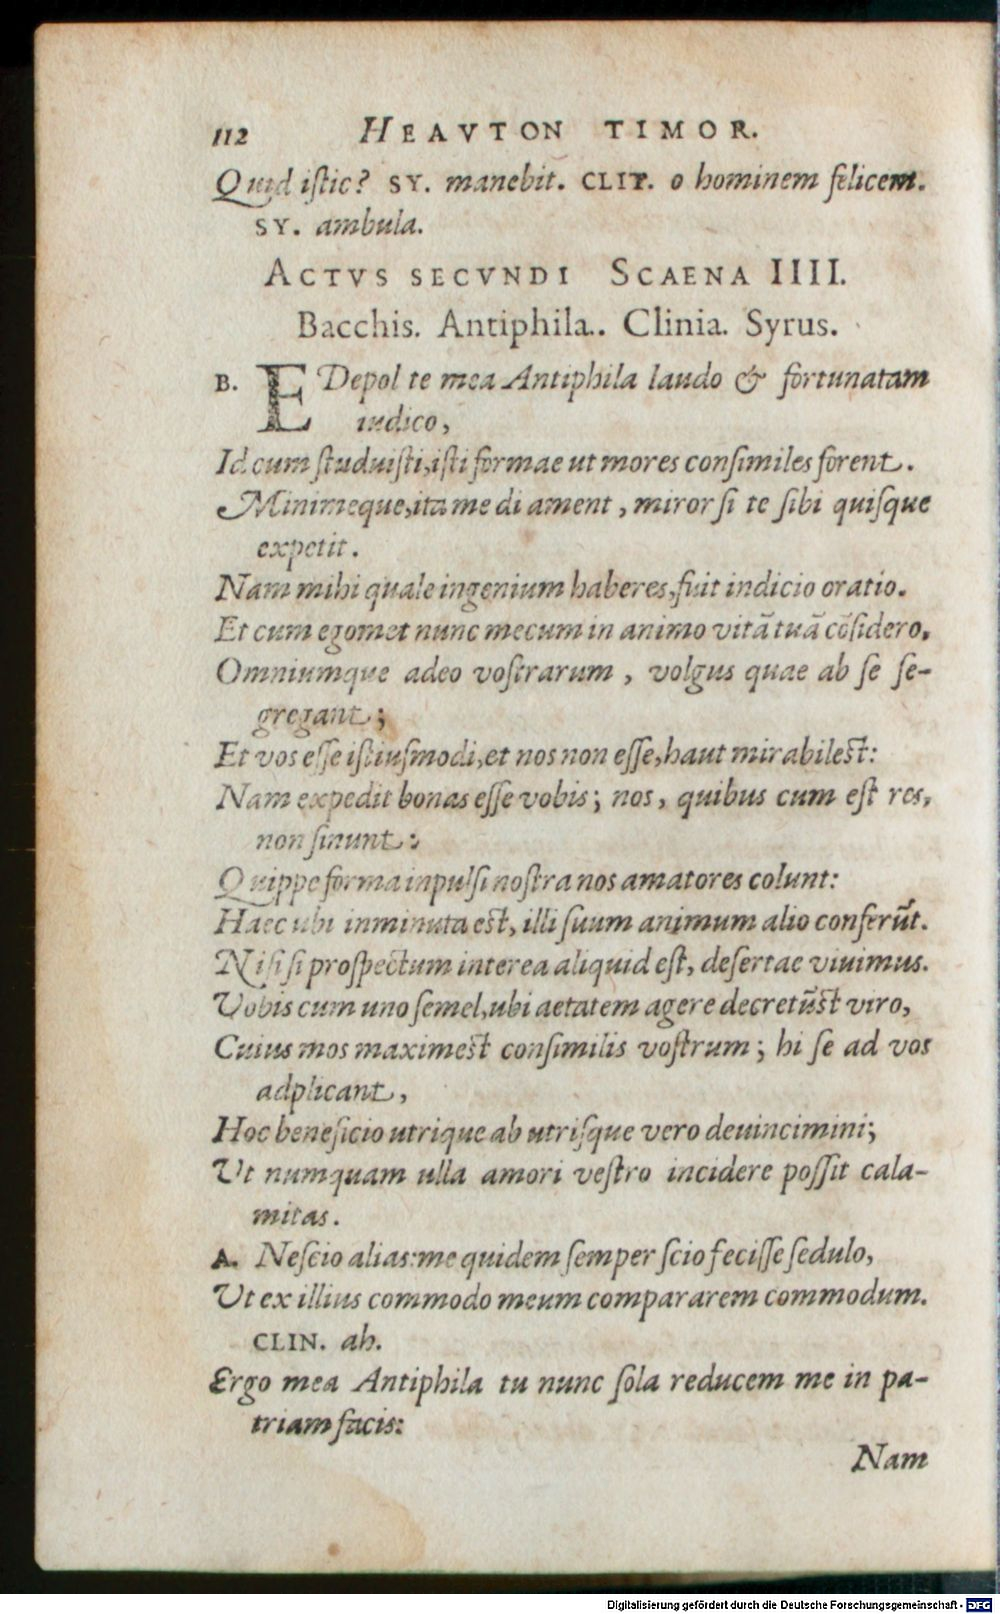 112 HEAVTON TIMOR.
Quid iſtic? SY. manebit. CLIT. o hominem felicem.
SY. ambula.
ACTVS SECVNDI SCAENA IIII.
Bacchis. Antiphila.. Clinia. Syrus.
B. EDepol te mea Antiphila laudo & fortunatam
iudico,
Id cum ſtuduiſti, iſti formae ut mores conſimiles forent.
Minimeque, ita me di ament, miror ſi te ſibi quiſque
expetit.
Nam mihi quale ingenium haberes, fuit indicio oratio.
Et cum egomet nunc mecum in animo vitã tuã cõſidero,
Omniumque adeo voſtrarum, volgus quae ab ſe ſe-
gregant;
Et vos eſſe iſtiuſmodi, et nos non eſſe, haut mirabileſt:
Nam expedit bonas eſſe vobis; nos, quibus cum eſt res,
non ſinunt:
Quippe forma inpulſi noſtra nos amatores colunt:
Haec ubi inminuta eſt, illi ſuum animum alio conferũt.
Niſi ſi proſpectum interea aliquid eſt, deſertae viuimus.
Vobis cum uno ſemel, ubi aetatem agere decretũſt viro,
Cuius mos maximeſt conſimilis voſtrum; hi ſe ad vos
adplicant,
Hoc beneficio utrique ab utriſque vero deuincimini;
Ut numquam ulla amori veſtro incidere poſſit cala-
mitas.
A. Neſcio alias: me quidem ſemper ſcio feciſſe ſedulo,
Ut ex illius commodo meum compararem commodum.
CLIN. ah.
Ergo mea Antiphila tu nunc ſola reducem me in pa-
triam facis:
Nam
Digitalisierung gefördert durch die Deutsche Forschungsgemeinschaft - DFG